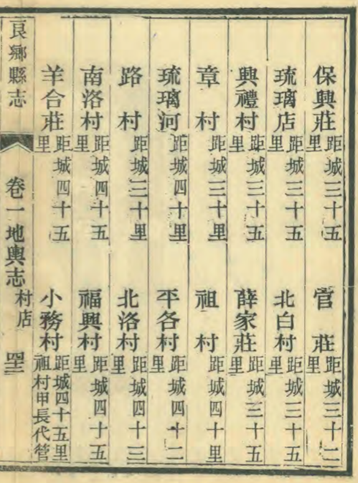 保興莊距城三十五里 管莊距城三十二里
琉璃店距城三十五里 北白村距城三十五里
興禮村距城三十五里 薛家莊距城三十五里
章村距城三十里 祖村距城四十里
琉璃河距城四十里 平各村距城四十二里
路村距城三十里 北洛村距城四十三里
南洛村距城四十五里 福興村距城四十五里
羊合莊距城四十五里 小務村距城四十五里祖村甲長代管
良鄉縣志 卷一地輿志 村店